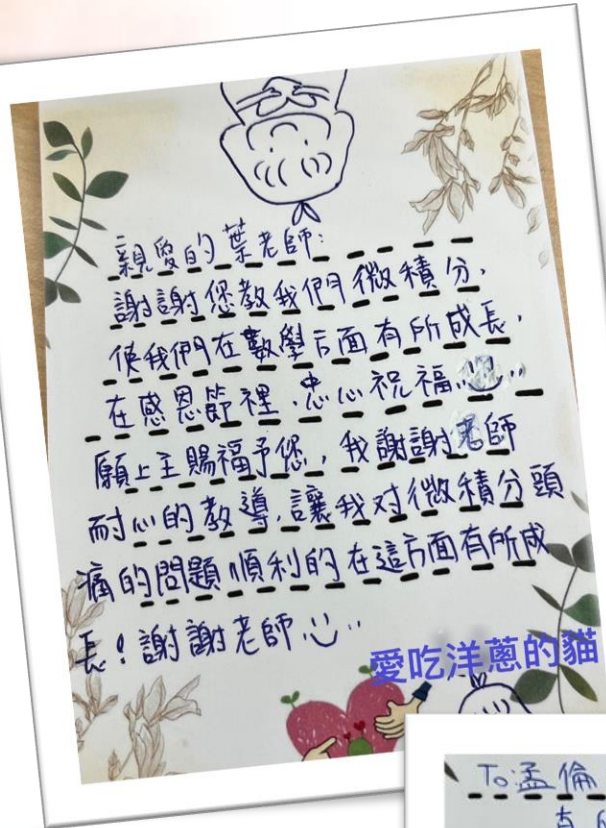 親愛的葉老師:
謝謝您教我們微積分,
使我們在數學方面有所成長,
在感恩節裡,忠心祝福您
願上主賜福予您,我謝謝老師
耐心的教導,讓我对微積分頭
痛的問題順利的在這方面有所成
長!謝謝老師
愛吃洋蔥的貓
To:孟倫